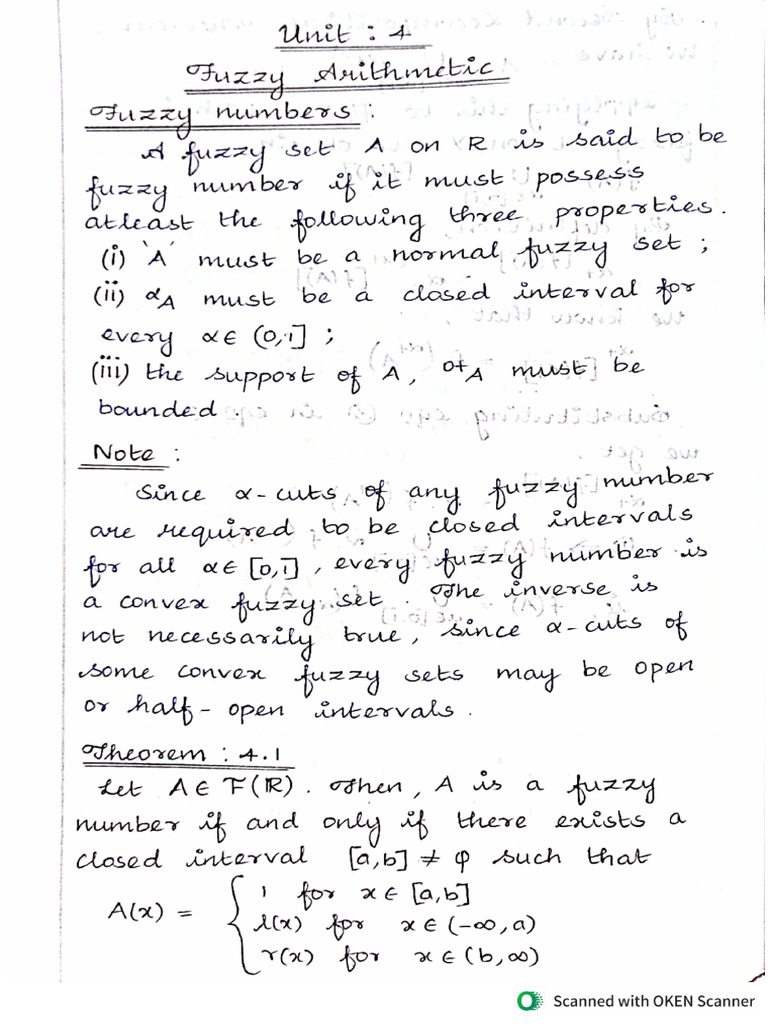 Unit : 4
Fuzzy Arithmetic
Fuzzy numbers :
A fuzzy set A on R is said to be
fuzzy number if it must possess
atleast the following three properties.
(i) 'A' must be a normal fuzzy set ;
(ii) αA must be a closed interval for
every α∈ (0,1] ;
(iii) the support of A, 0+A must be
bounded
Note :
Since α-cuts of any fuzzy number
are required to be closed intervals
for all α∈ [0,1], every fuzzy number is
a convex fuzzy set. The inverse is
not necessarily true, since α-cuts of
some convex fuzzy sets may be open
or half-open intervals.
Theorem : 4.1
Let A∈ F(ℝ). Then, A is a fuzzy
number if and only if there exists a
closed interval [a,b] ≠ φ such that
A(x) = { 1 for x∈ [a,b]
l(x) for x∈ (-∞,a)
r(x) for x∈ (b,∞)
Scanned with OKEN Scanner